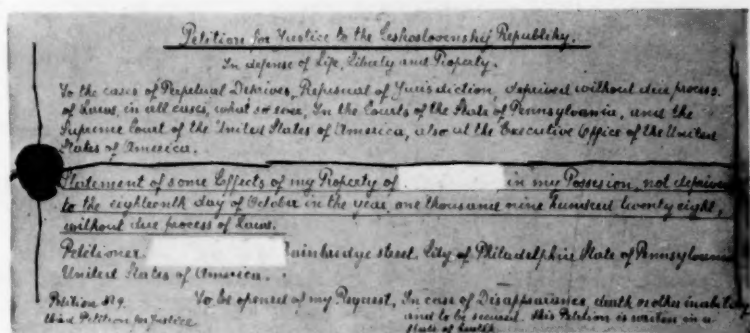 Petition for Justice to the Ceskoslovenský Republiky.
In defense of Life, Liberty and Property.
To the cases of Perpetual Deprives, Repusual of Jurisdiction, deprived without due process
of Laws, in all cases, what so ever, In the Courts of the State of Pennsylvania, and the
Supreme Court of the United States of America, also at the Executive Office of the United
States of America.
Statement of some Effects of my Property of in my Possesion, not deprived
to the eighteenth day of October in the year, one thousand nine hundred twenty eight,
without due process of Laws.
Petitioner Bainbridge street, City of Philadelphia State of Pennsylvania
United States of America.
Petition No 9. To be opened at my Request, In case of Disappearance, death or other
third Petition for Justice and to be secured. this Petition is written in a
state of health